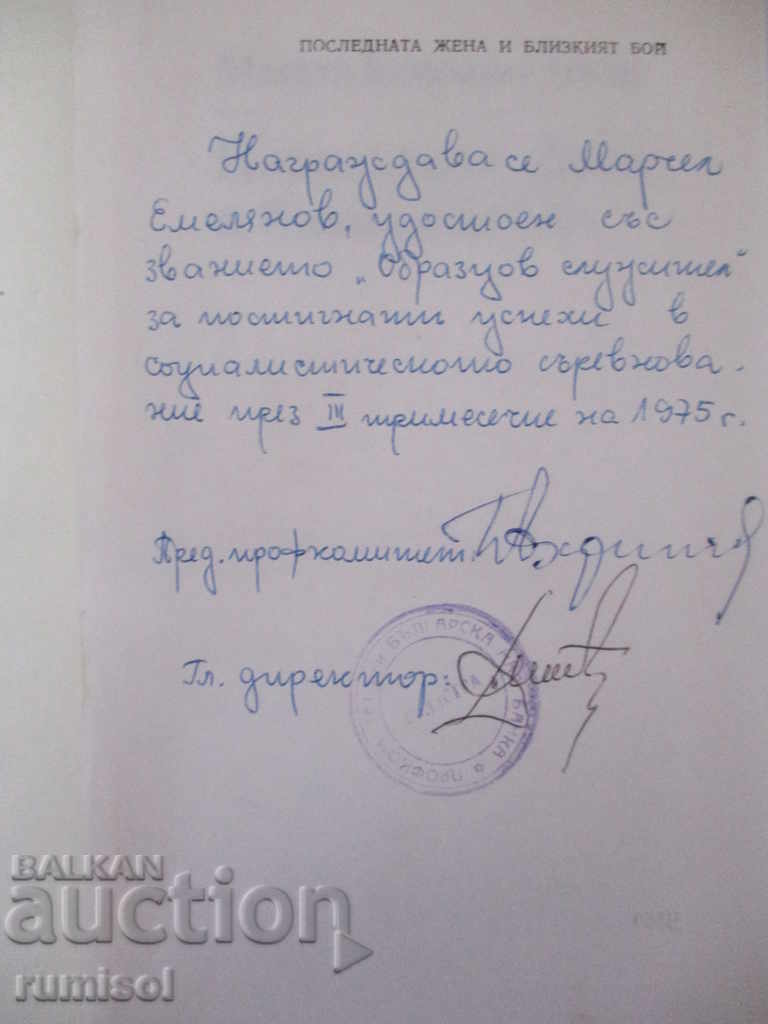 ПОСЛЕДНАТА ЖЕНА И БЛИЗКИЯТ БОЙ
Награждава се Марчел
Емелянов, удостоен със
званието „Образцов служител"
за постигнати успехи в
социалистическото съревнова-
ние през III тримесечие на 1975 г.
Пред. профкомитет:
Гл. директор:
БЪЛГАРСКА
БАНКА
ПРОФКОМ
BALKAN
auction
rumisol